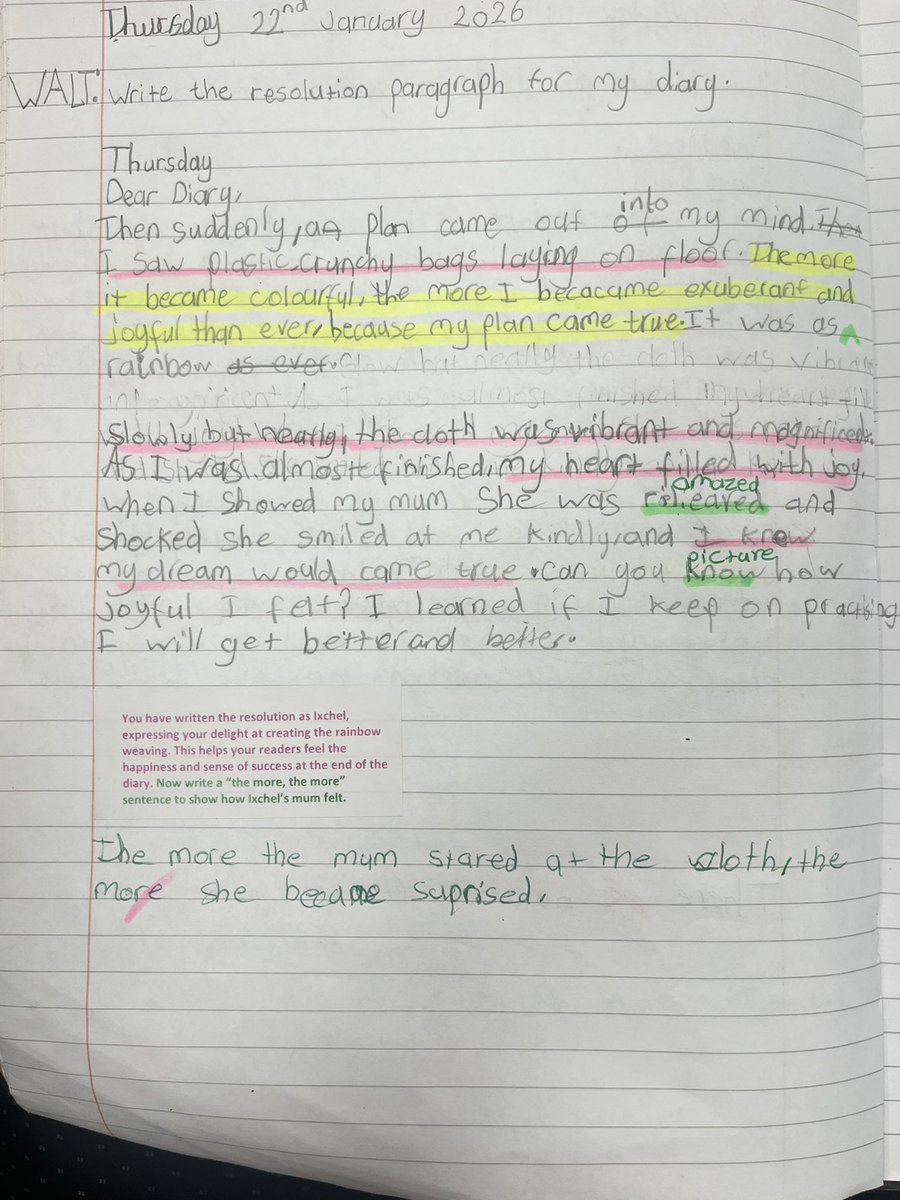 Thursday 22nd January 2026
WALT: Write the resolution paragraph for my diary.
Thursday
Dear Diary,
Then suddenly, a plan came out of into my mind. Then
I saw plastic crunchy bags laying on floor. The more
it became colourful, the more I becacume exuberant and
joyful than ever, because my plan came true. It was as
rainbow as ever. Slow but neatly the cloth was vibrant
As I was almost finished my heart fill
Slowly but neatly, the cloth was vibrant and magnificent.
As I was almost finished, my heart filled with joy,
when I showed my mum she was amazed and
shocked she smiled at me kindly, and I know
my dream would came true. Can you know picture how
joyful I felt? I learned if I keep on practising
I will get better and better.
You have written the resolution as Ixchel,
expressing your delight at creating the rainbow
weaving. This helps your readers feel the
happiness and sense of success at the end of the
diary. Now write a "the more, the more"
sentence to show how Ixchel's mum felt.
The more the mum stared at the cloth, the
more she became suprised.